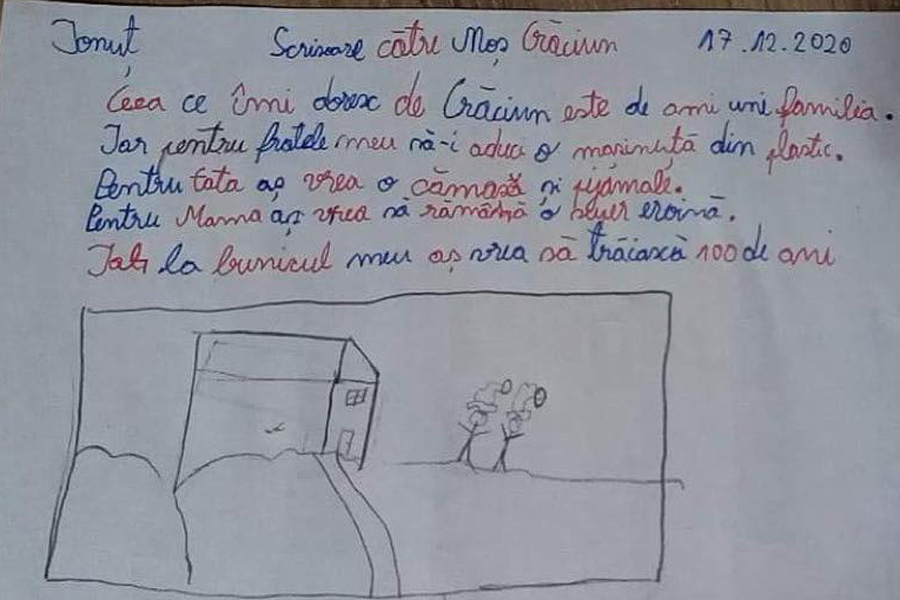 Ionuț Scrisoare către Moș Crăciun 17.12.2020
Ceea ce îmi doresc de Crăciun este de a mi uni familia.
Iar pentru fratele meu să-i aduci o mașinuță din plastic.
Pentru tata aș vrea o cămasă și pijamale.
Pentru Mama aș vrea să rămână o super eroină.
Iar la bunicul meu aș vrea să trăiască 100 de ani